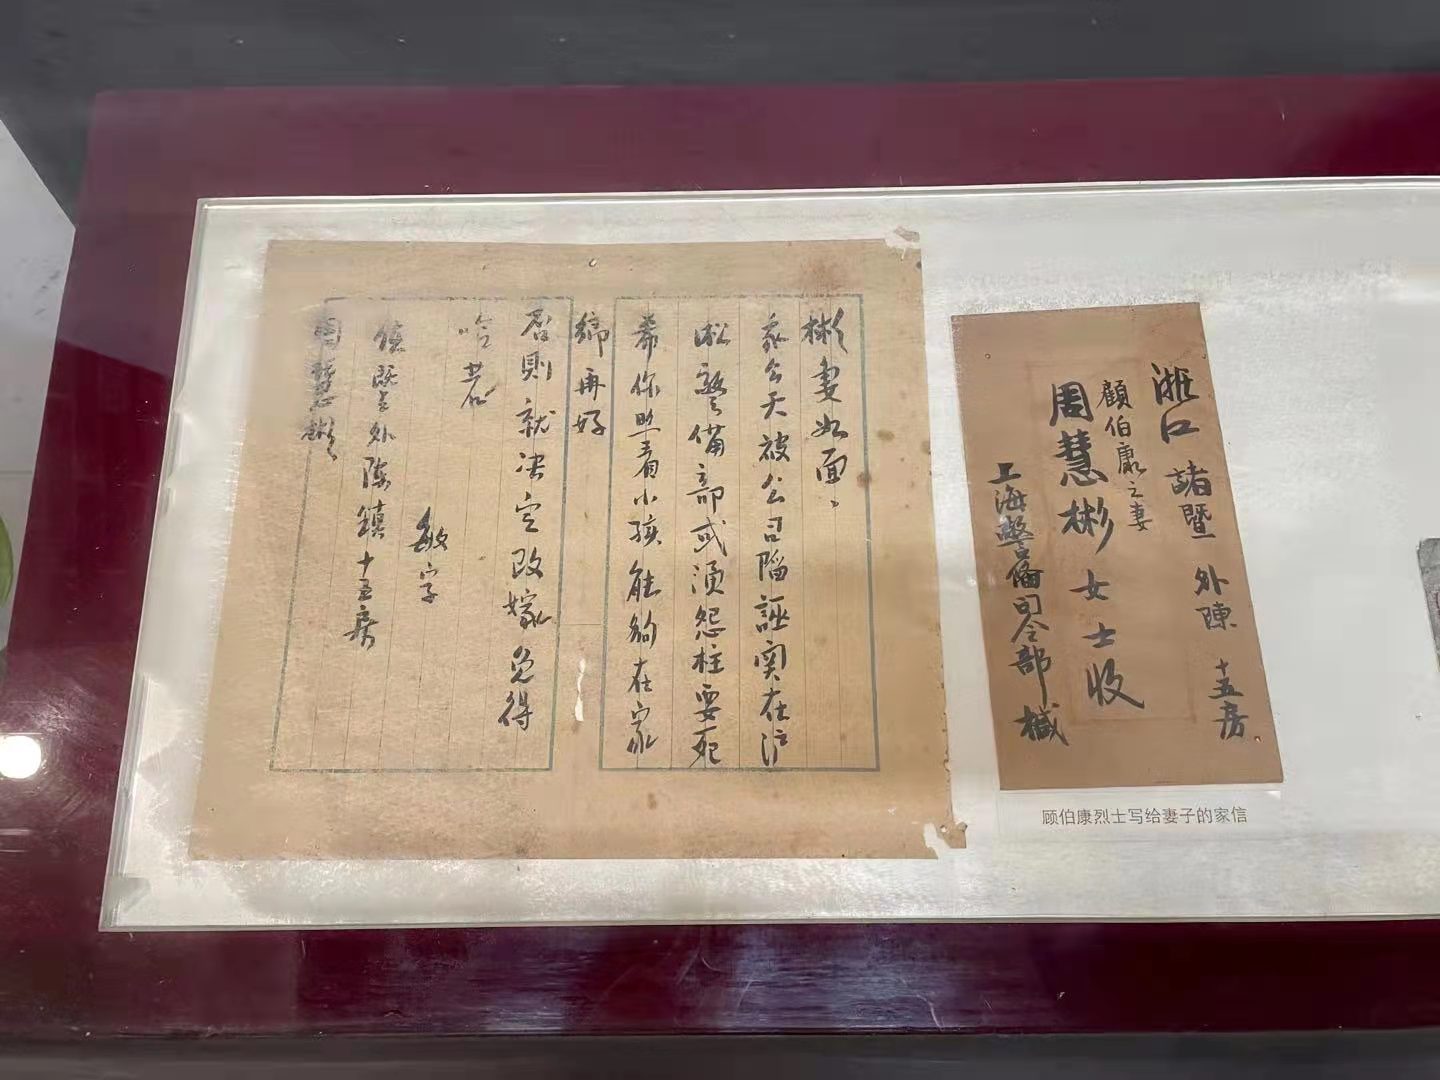 浙江 諸暨 外陳 十五房
顧伯康之妻
周慧彬女士收
上海警備司令部緘
彬妻如面、
我今天被公司陷誣関在淞
滬警備部或須怨枉要死
希你照看小孩能够在家
緜再好
否則就决定改嫁免得
吃苦
敏字
鎮既 外陈鎮十五房
周慧彬
顾伯康烈士写给妻子的家信